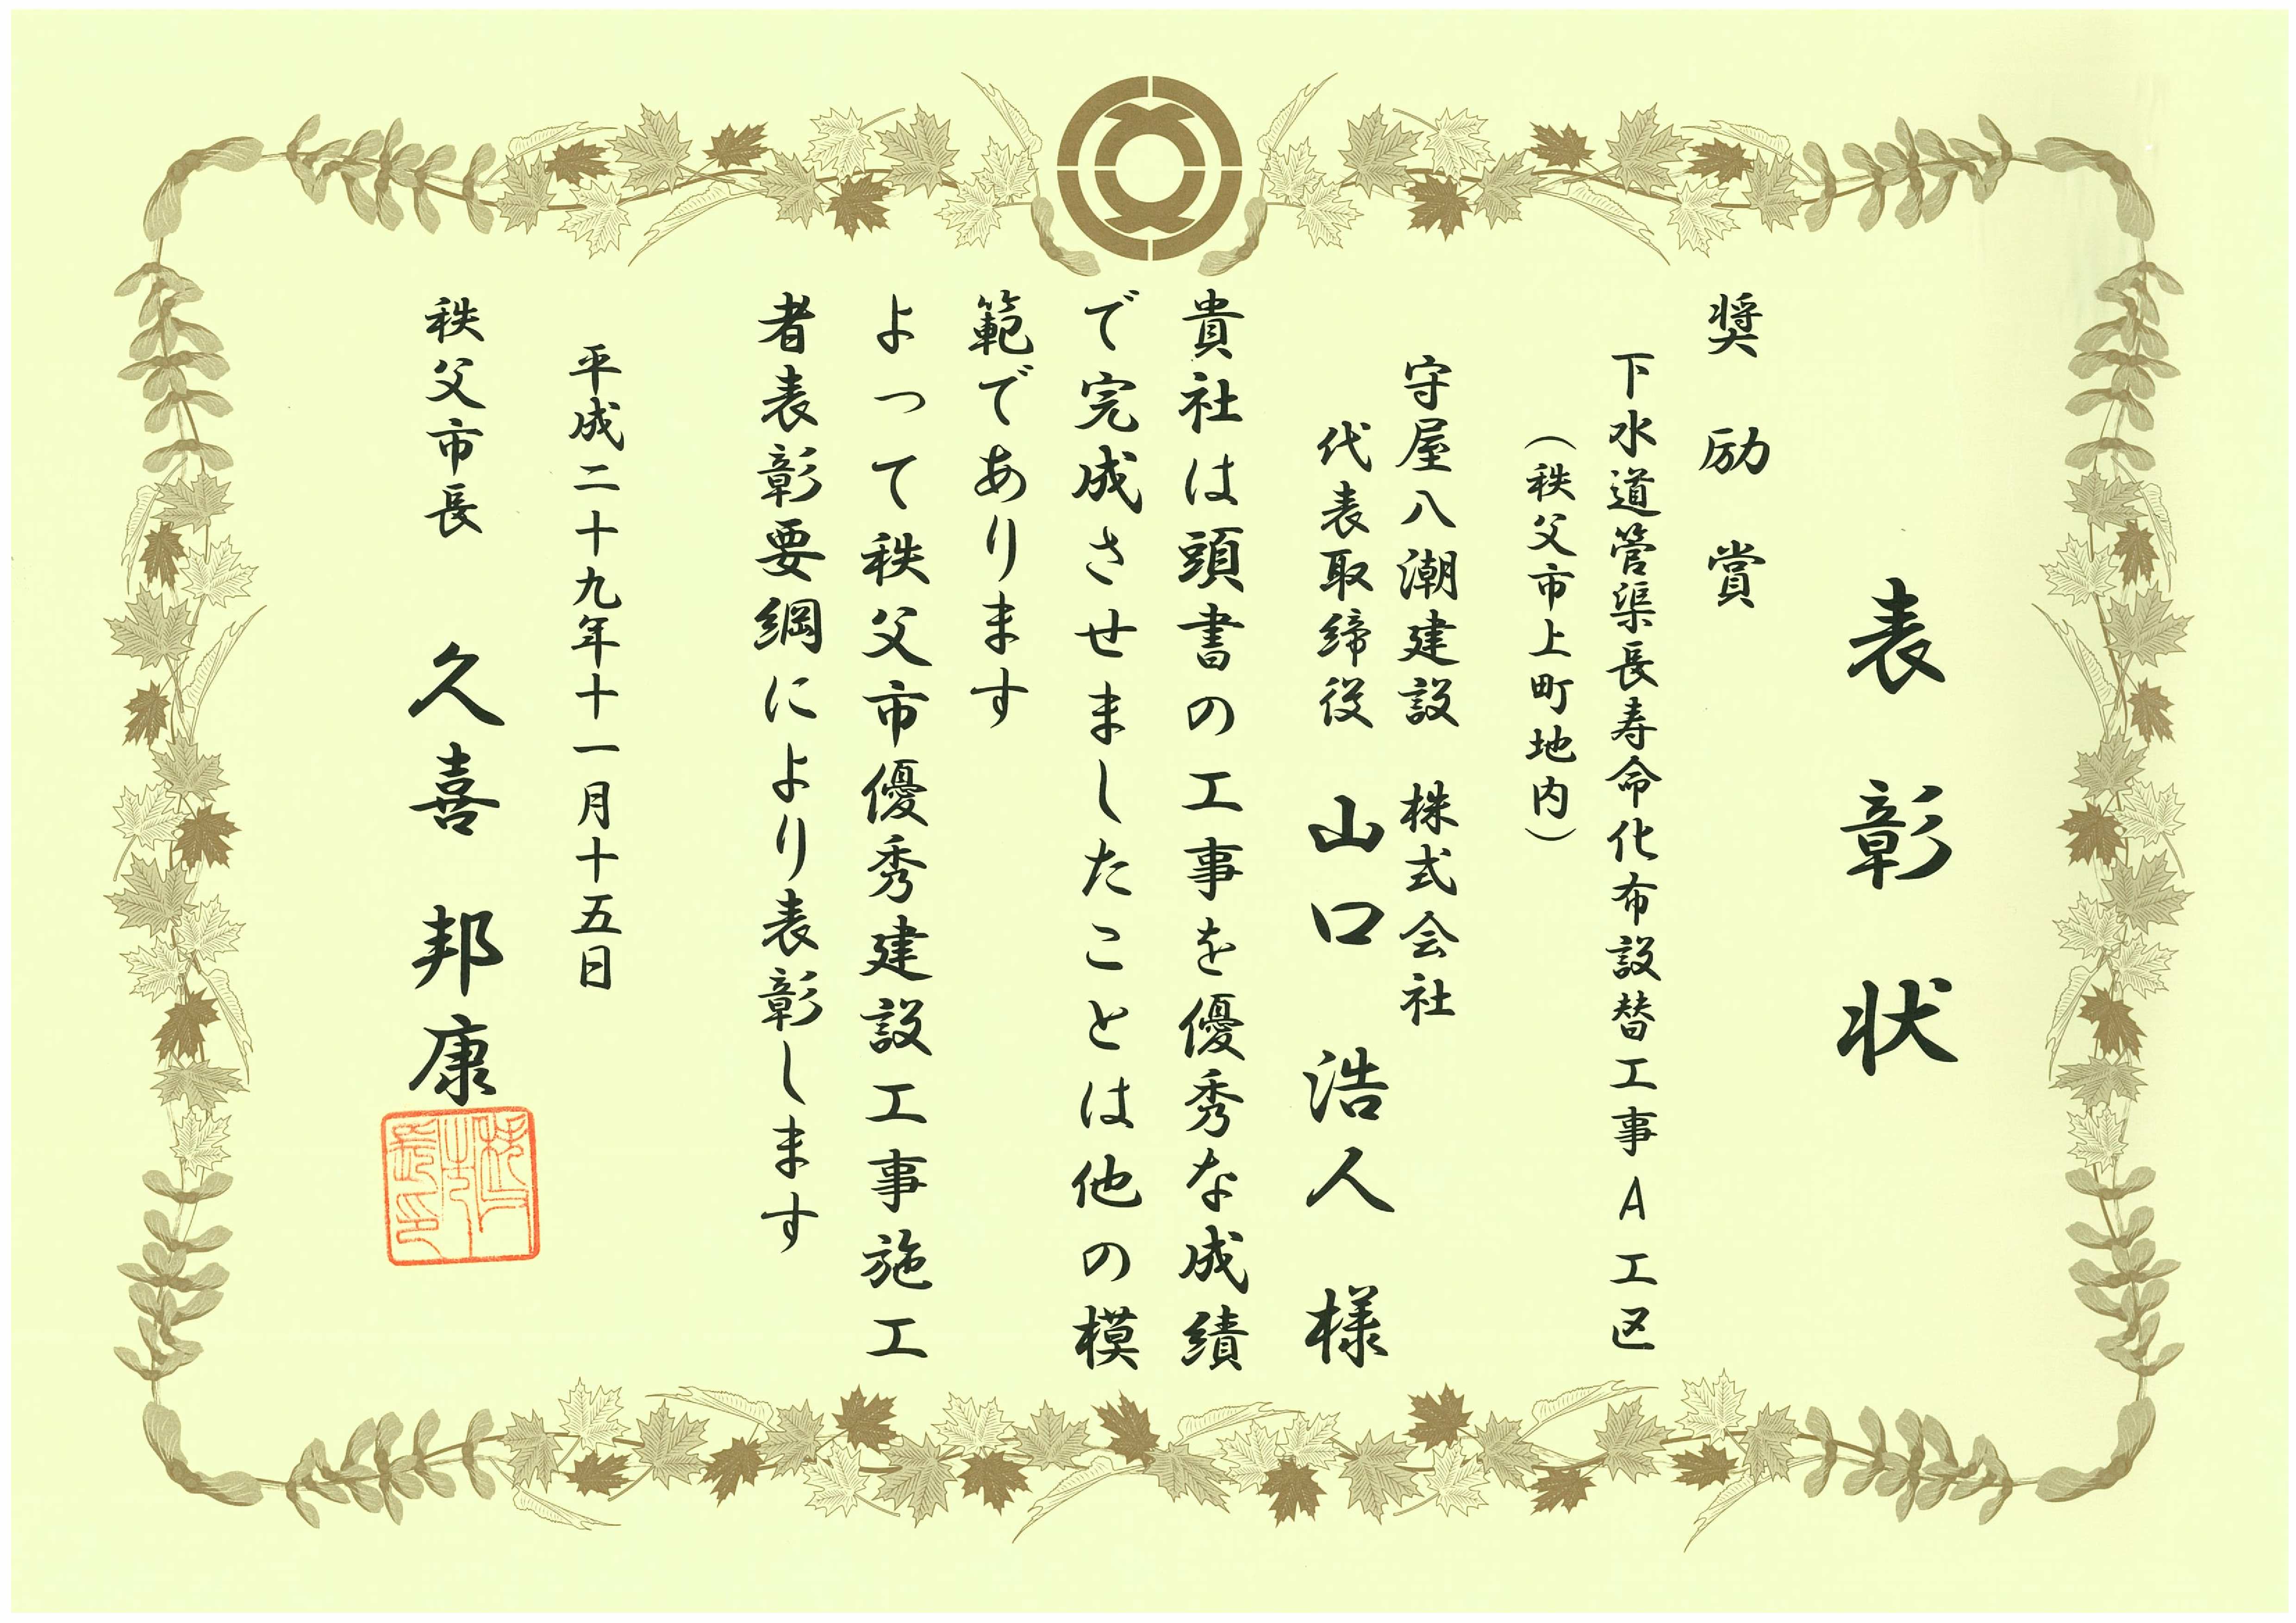 表彰状
奨励賞
下水道管渠長寿命化布設替工事A工区
（秩父市上町地内）
守屋八潮建設　株式会社
代表取締役　山口　浩人　様
貴社は頭書の工事を優秀な成績
で完成させましたことは他の模
範であります
よって秩父市優秀建設工事施工
者表彰要綱により表彰します
平成二十九年十一月十五日
秩父市長　久喜　邦康
秩父市長印